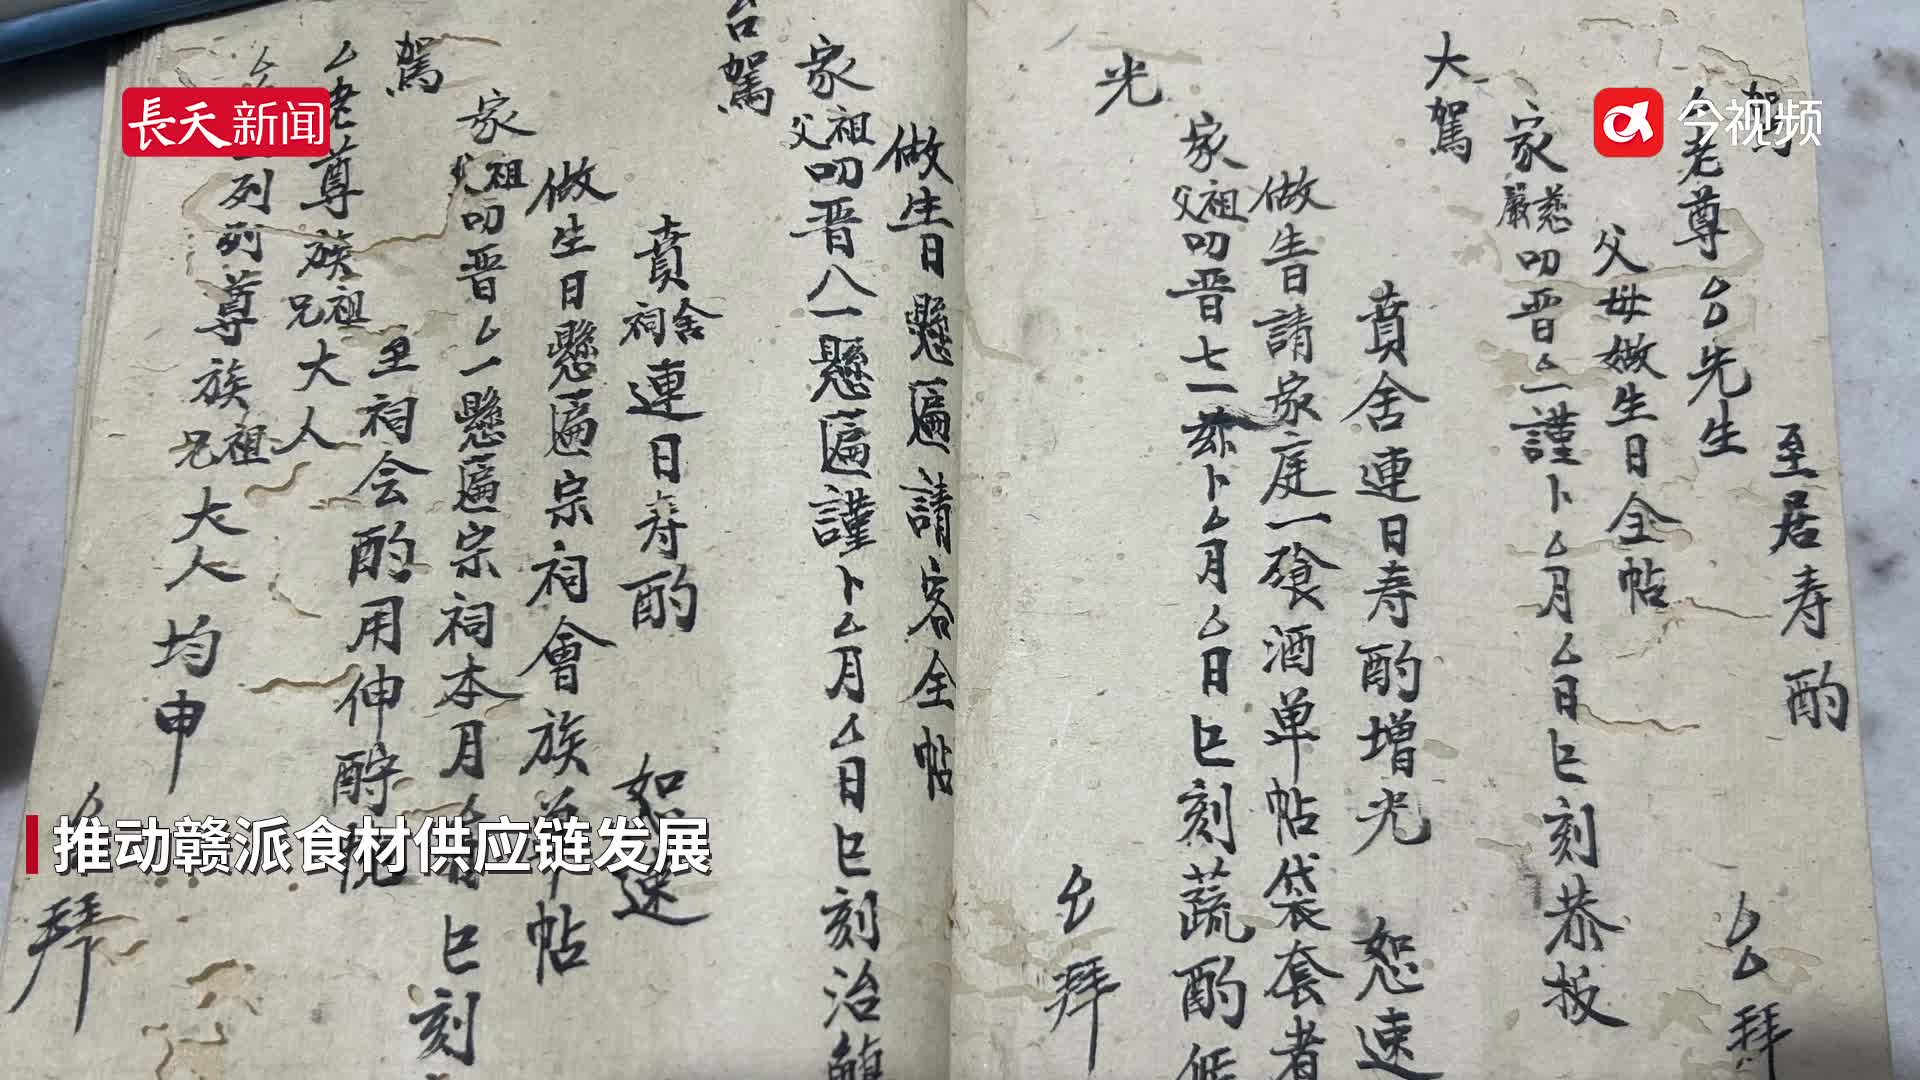 長天新闻
今视频
推动赣派食材供应链发展
駕
至居寿酌
厶老尊厶台先生
厶厶拜
父母做生日全帖
家嚴慈叨晋厶一謹卜厶月厶日巳刻恭扳
大駕
賁舍連日寿酌增光 恕速
做生日請家庭一飧酒单帖袋套者
家父祖叨晋七一兹卜厶月厶日巳刻蔬酌
光
厶拜
做生日懸匾請客全帖
家父祖叨晋八一懸匾謹卜厶月厶日巳刻治
台駕
賁祠舍連日寿酌 恕速
做生日懸匾宗祠會族单帖
家父祖叨晋厶一懸匾宗祠本月 巳刻
駕
至祠会酌用伸酧
厶老尊族兄祖大人
列列尊族兄祖大人均申
厶拜